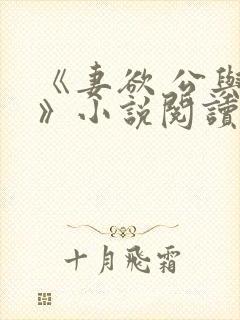 《妻欲 公與
》小說閱讀
十月飛霜